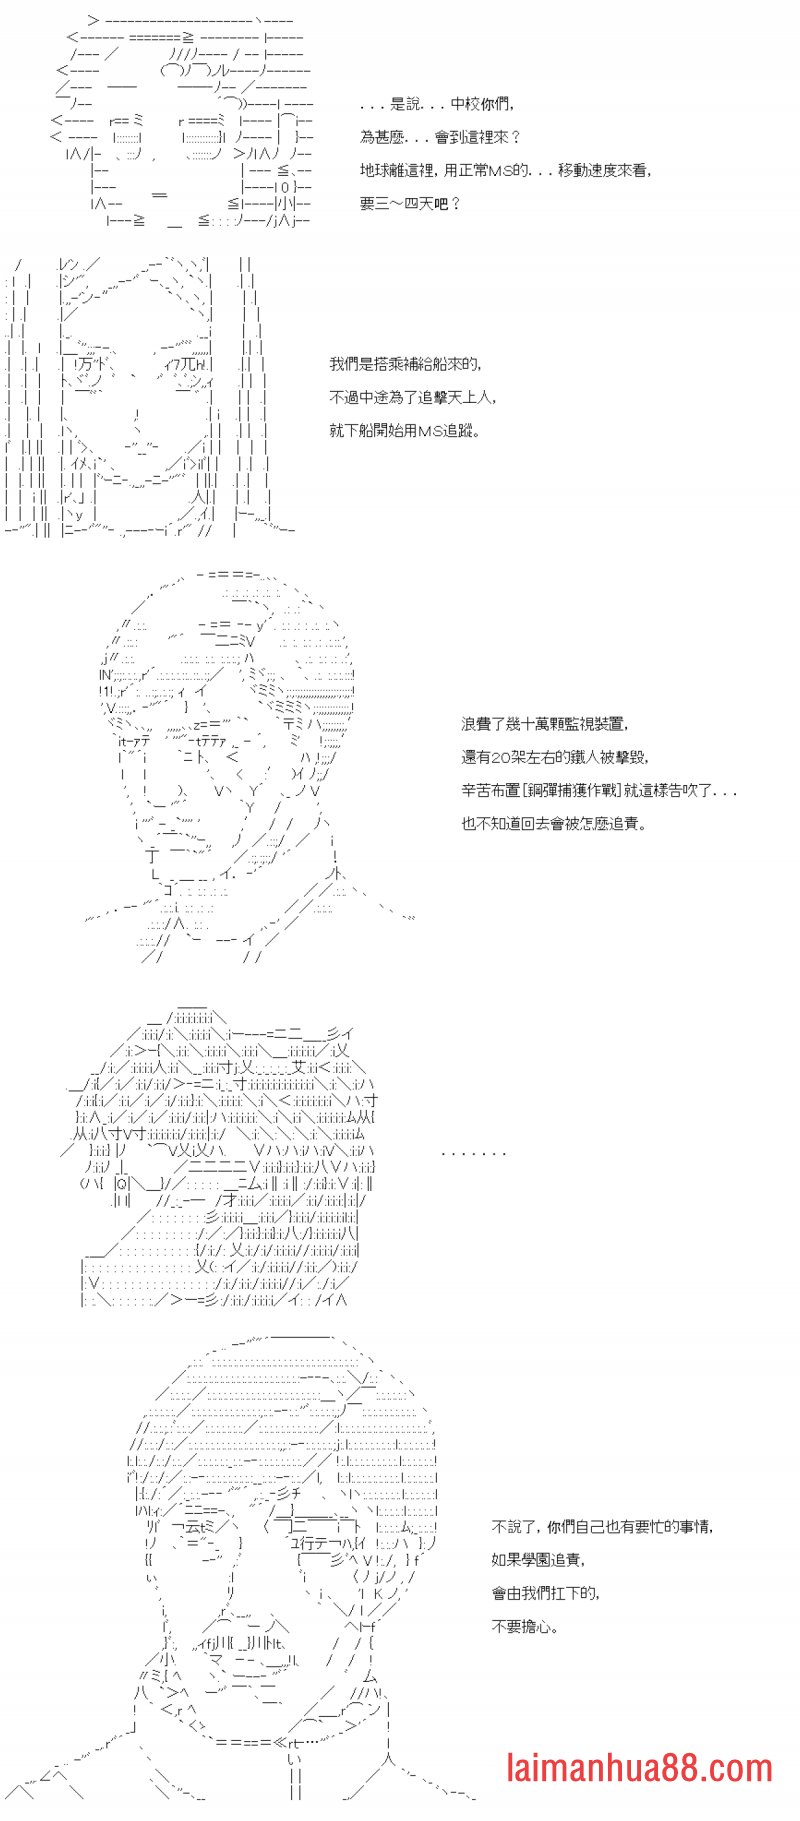 ...是說...中校你們，
為甚麼...會到這裡來？
地球離這裡，用正常MS的...移動速度來看，
要三～四天吧？
我們是搭乘補給船來的，
不過中途為了追擊天上人，
就下船開始用MS追蹤。
浪費了幾十萬顆監視裝置，
還有20架左右的鐵人被擊毀，
辛苦布置[鋼彈捕獲作戰]就這樣告吹了...
也不知道回去會被怎麼追責。
.......
不說了，你們自己也有要忙的事情，
如果學園追責，
會由我們扛下的，
不要擔心。
laimanhua88.com